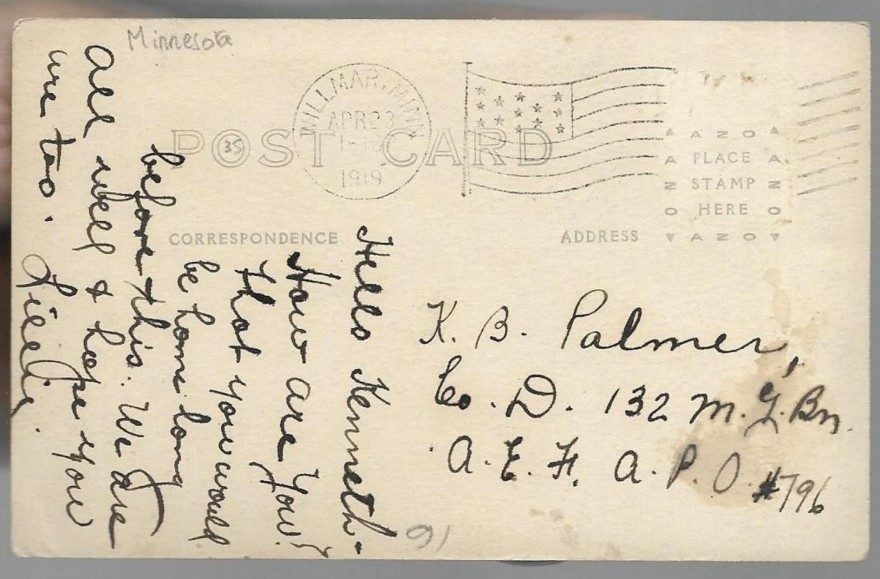 Minnesota
WILLMAR, MINN.
APR 23
1919
POST CARD
35
AZO
PLACE
STAMP
HERE
AZO
AZO
AZO
CORRESPONDENCE
ADDRESS
Hello Kenneth-
How are you?
Thot you would
be home long
before this. We are
all well & hope you
are too. Lillie.
K. B. Palmer,
Co. D. 132 M. G. Bn.
A. E. F. A. P. O. #796